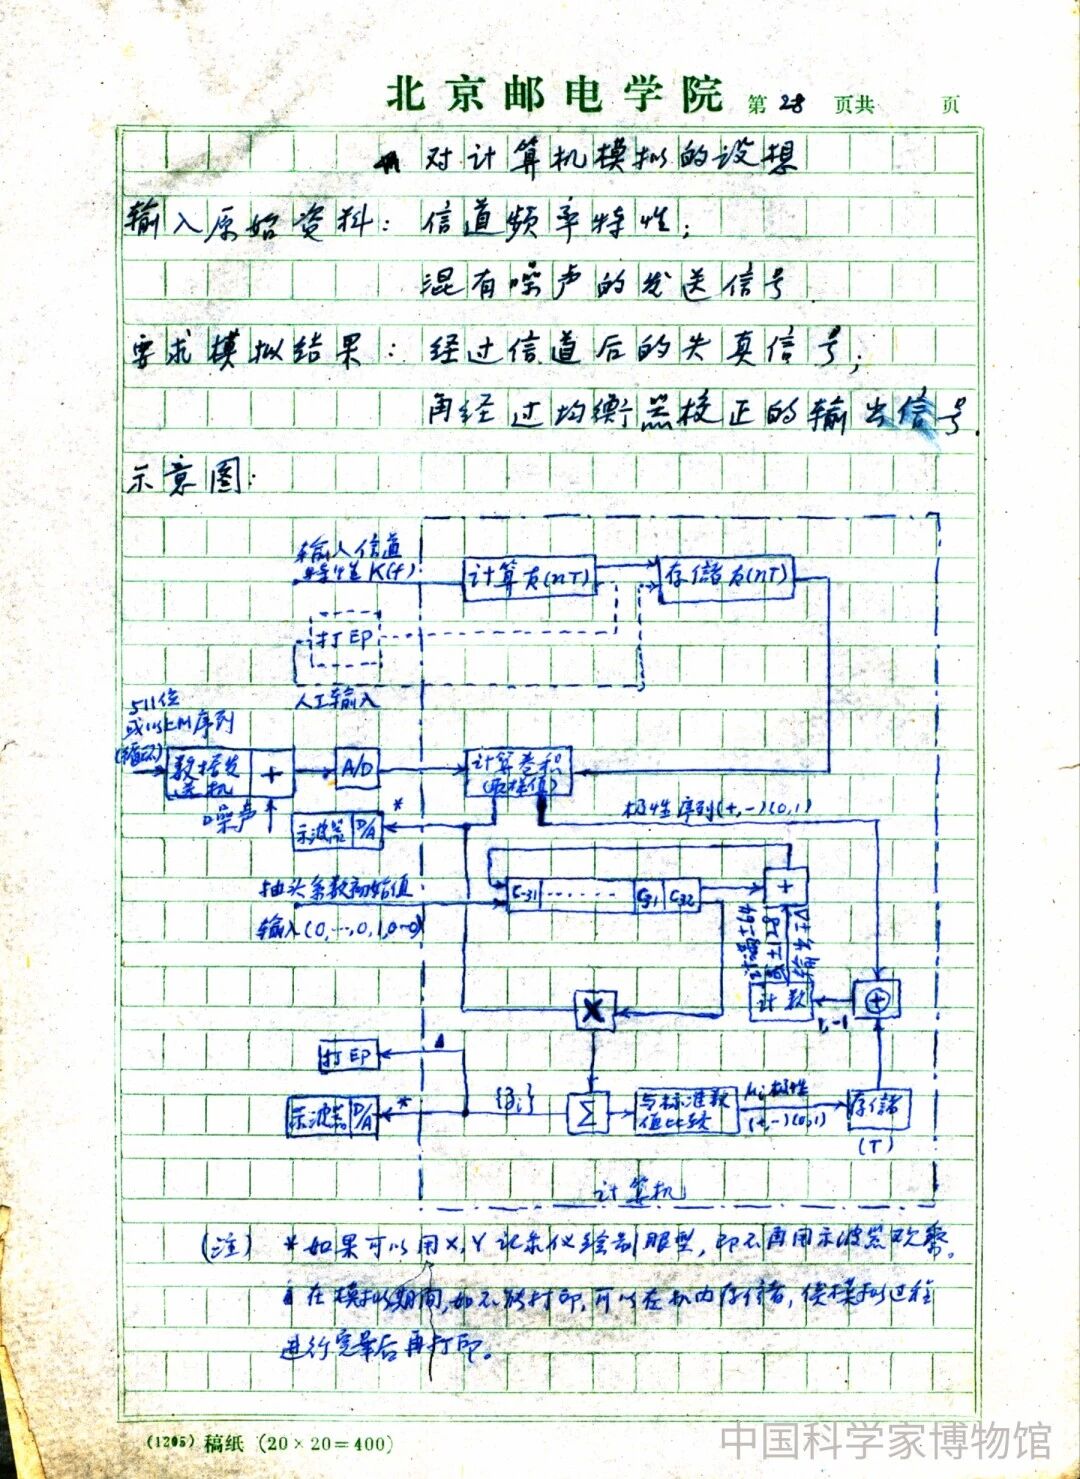 北京邮电学院 第 28 页共 页
对计算机模拟的设想
输入原始资料: 信道频率特性;
混有噪声的发送信号
要求模拟结果: 经过信道后的失真信号;
再经过均衡器校正的输出信号.
示意图:
输入信道
特性K(f)
计算
(nT)
存储
(nT)
打印
人工输入
511位
M序列
(循环)
数据发
送机
+
A/D
计算卷积
(取样值)
噪声
示波器 D/A
*
极性序列(+,-)(0,1)
抽头系数初始值
输入(0,…,0,1,0…0)
C-31 …… C31 C32
+
计满±64
或±128
输出±Δ
计数
⊕
1,-1
X
打印
示波器 D/A
*
Σ
与标准数
值比较
极性
(+,-)(0,1)
存储
(T)
计算机
(注) *如果可以用X,Y记录仪绘制眼型,即不再用示波器观察。
在模拟期间,如不能打印,可以在机内存储,俟模拟过程
进行完毕后再打印。
(1205) 稿纸 (20×20=400)
中国科学家博物馆